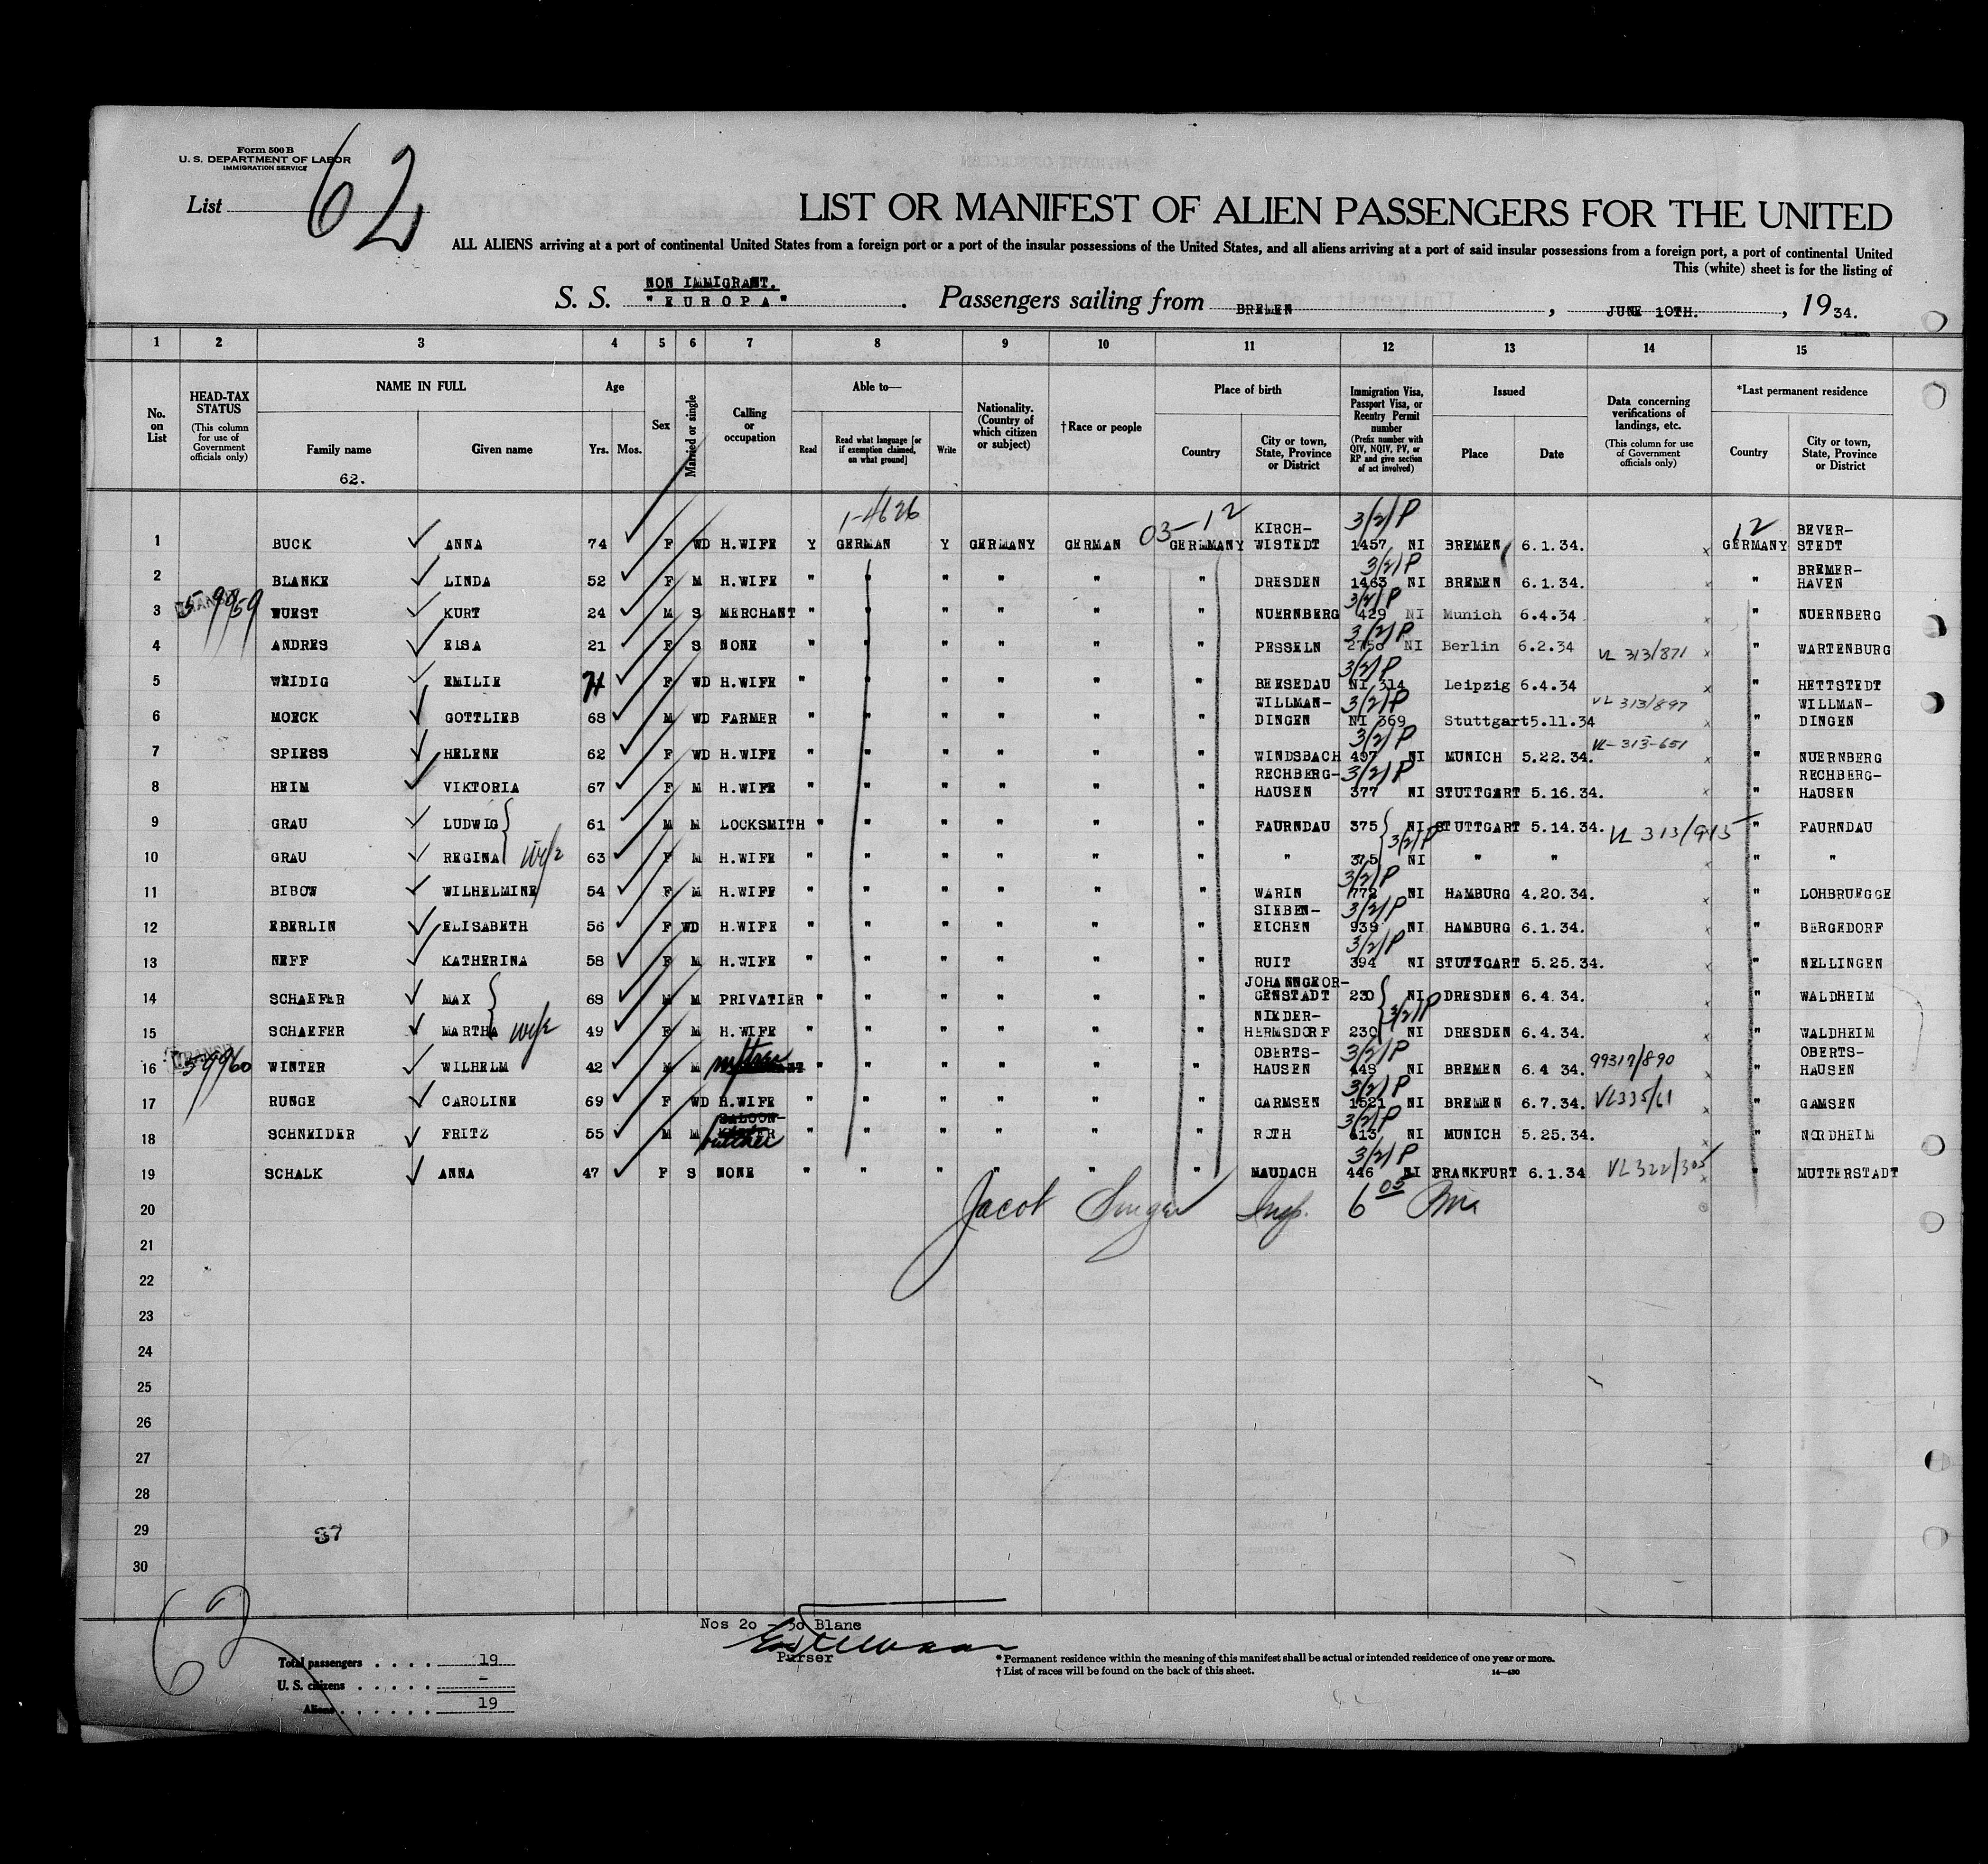 Form 500 B
U. S. DEPARTMENT OF LABOR
IMMIGRATION SERVICE
List 62
LIST OR MANIFEST OF ALIEN PASSENGERS FOR THE UNITED
ALL ALIENS arriving at a port of continental United States from a foreign port or a port of the insular possessions of the United States, and all aliens arriving at a port of said insular possessions from a foreign port, a port of continental United
This (white) sheet is for the listing of
NON IMMIGRANT.
S. S. "EUROPA". Passengers sailing from BREMEN, JUNE 10TH., 1934.
1 2 3 4 5 6 7 8 9 10 11 12 13 14 15
No. on List
HEAD-TAX STATUS (This column for use of Government officials only)
NAME IN FULL
Family name Given name
62.
Age
Yrs. Mos.
Sex
Married or single
Calling or occupation
Able to—
Read
Read what language [or if exemption claimed, on what ground]
Write
Nationality. (Country of which citizen or subject)
†Race or people
Place of birth
Country
City or town, State, Province or District
Immigration Visa, Passport Visa, or Reentry Permit number (Prefix number with QIV, NQIV, PV, or RP and give section of act involved)
Issued
Place Date
Data concerning verifications of landings, etc. (This column for use of Government officials only)
*Last permanent residence
Country
City or town, State, Province or District
1-4626 03-12 3/2/P 12
1 BUCK ANNA 74 F WD H.WIFE Y GERMAN Y GERMANY GERMAN GERMMANY KIRCH-WISTEDT 1457 NI BREMEN 6.1.34. GERMANY BEVER-STEDT
3/2/P
2 BLANKE LINDA 52 F M H.WIFE " " " " " " DRESDEN 1463 NI BREMEN 6.1.34. " BREMER-HAVEN
3/2/P
3 WUEST KURT 24 M S MERCHANT " " " " " " NUERNBERG 429 NI Munich 6.4.34 " NUERNBERG
3/2/P
4 ANDRES ELSA 21 F S NONE " " " " " " PESSELN 2750 NI Berlin 6.2.34 VL 313/871 " WARTENBURG
3/2/P
5 WEIDIG EMILIE 71 F WD H.WIFE " " " " " " BEESEDAU NI 314 Leipzig 6.4.34 " HETTSTEDT
3/2/P
6 MOECK GOTTLIEB 68 M WD FARMER " " " " " " WILLMAN-DINGEN NI 369 Stuttgart 5.11.34 VL 313/897 " WILLMAN-DINGEN
3/2/P
7 SPIESS HELENE 62 F WD H.WIFE " " " " " " WINDSBACH 497 NI MUNICH 5.22.34. VL-313-651 " NUERNBERG
3/2/P
8 HEIM VIKTORIA 67 F M H.WIFE " " " " " " RECHBERG-HAUSEN 377 NI STUTTGART 5.16.34. " RECHBERG-HAUSEN
9 GRAU LUDWIG 61 M M LOCKSMITH " " " " " " FAURNDAU 375 NI STUTTGART 5.14.34. VL 313/915 " FAURNDAU
3/2/P
10 GRAU REGINA wife 63 F M H.WIFE " " " " " " " 375 NI " " " "
3/2/P
11 BIBOW WILHELMINE 54 F M H.WIFE " " " " " " WARIN 772 NI HAMBURG 4.20.34. " LOHBRUEGGE
3/2/P
12 EBERLIN ELISABETH 56 F WD H.WIFE " " " " " " SIEBEN-EICHEN 939 NI HAMBURG 6.1.34. " BERGEDORF
3/2/P
13 NEFF KATHERINA 58 F M H.WIFE " " " " " " RUIT 394 NI STUTTGART 5.25.34. " NELLINGEN
14 SCHAEFER MAX 68 M M PRIVATIER " " " " " " JOHANNGEOR-GENSTADT 230 NI DRESDEN 6.4.34. " WALDHEIM
3/2/P
15 SCHAEFER MARTHA wife 49 F M H.WIFE " " " " " " NIEDER-HERMSDORF 230 NI DRESDEN 6.4.34. " WALDHEIM
3/2/P
16 59960 WINTER WILHELM 42 M M " " " " " " OBERTS-HAUSEN 449 NI BREMEN 6.4 34. 99317/890 " OBERTS-HAUSEN
3/2/P
17 RUNGE CAROLINE 69 F WD H.WIFE " " " " " " GARMSEN 1521 NI BREMEN 6.7.34. VL335/61 " GAMSEN
3/2/P
18 SCHNEIDER FRITZ 55 M M SALOON- butcher " " " " " " ROTH 613 NI MUNICH 5.25.34. " NORDHEIM
3/2/P
19 SCHALK ANNA 47 F S NONE " " " " " " MAUDACH 446 NI FRANKFURT 6.1.34 VL322/305 " MUTTERSTADT
20 Jacob Singer Insp. 6 05
21
22
23
24
25
26
27
28
29
37
30
62
Nos 2o - 3o Blanc
Purser
Total passengers . . . . 19
U. S. citizens . . . . . -
Aliens . . . . . . 19
* Permanent residence within the meaning of this manifest shall be actual or intended residence of one year or more.
† List of races will be found on the back of this sheet.
14—430